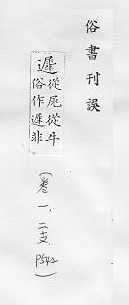 俗書刊誤
遲
從尾從牛
俗作遲非
(卷一、二支 P542)